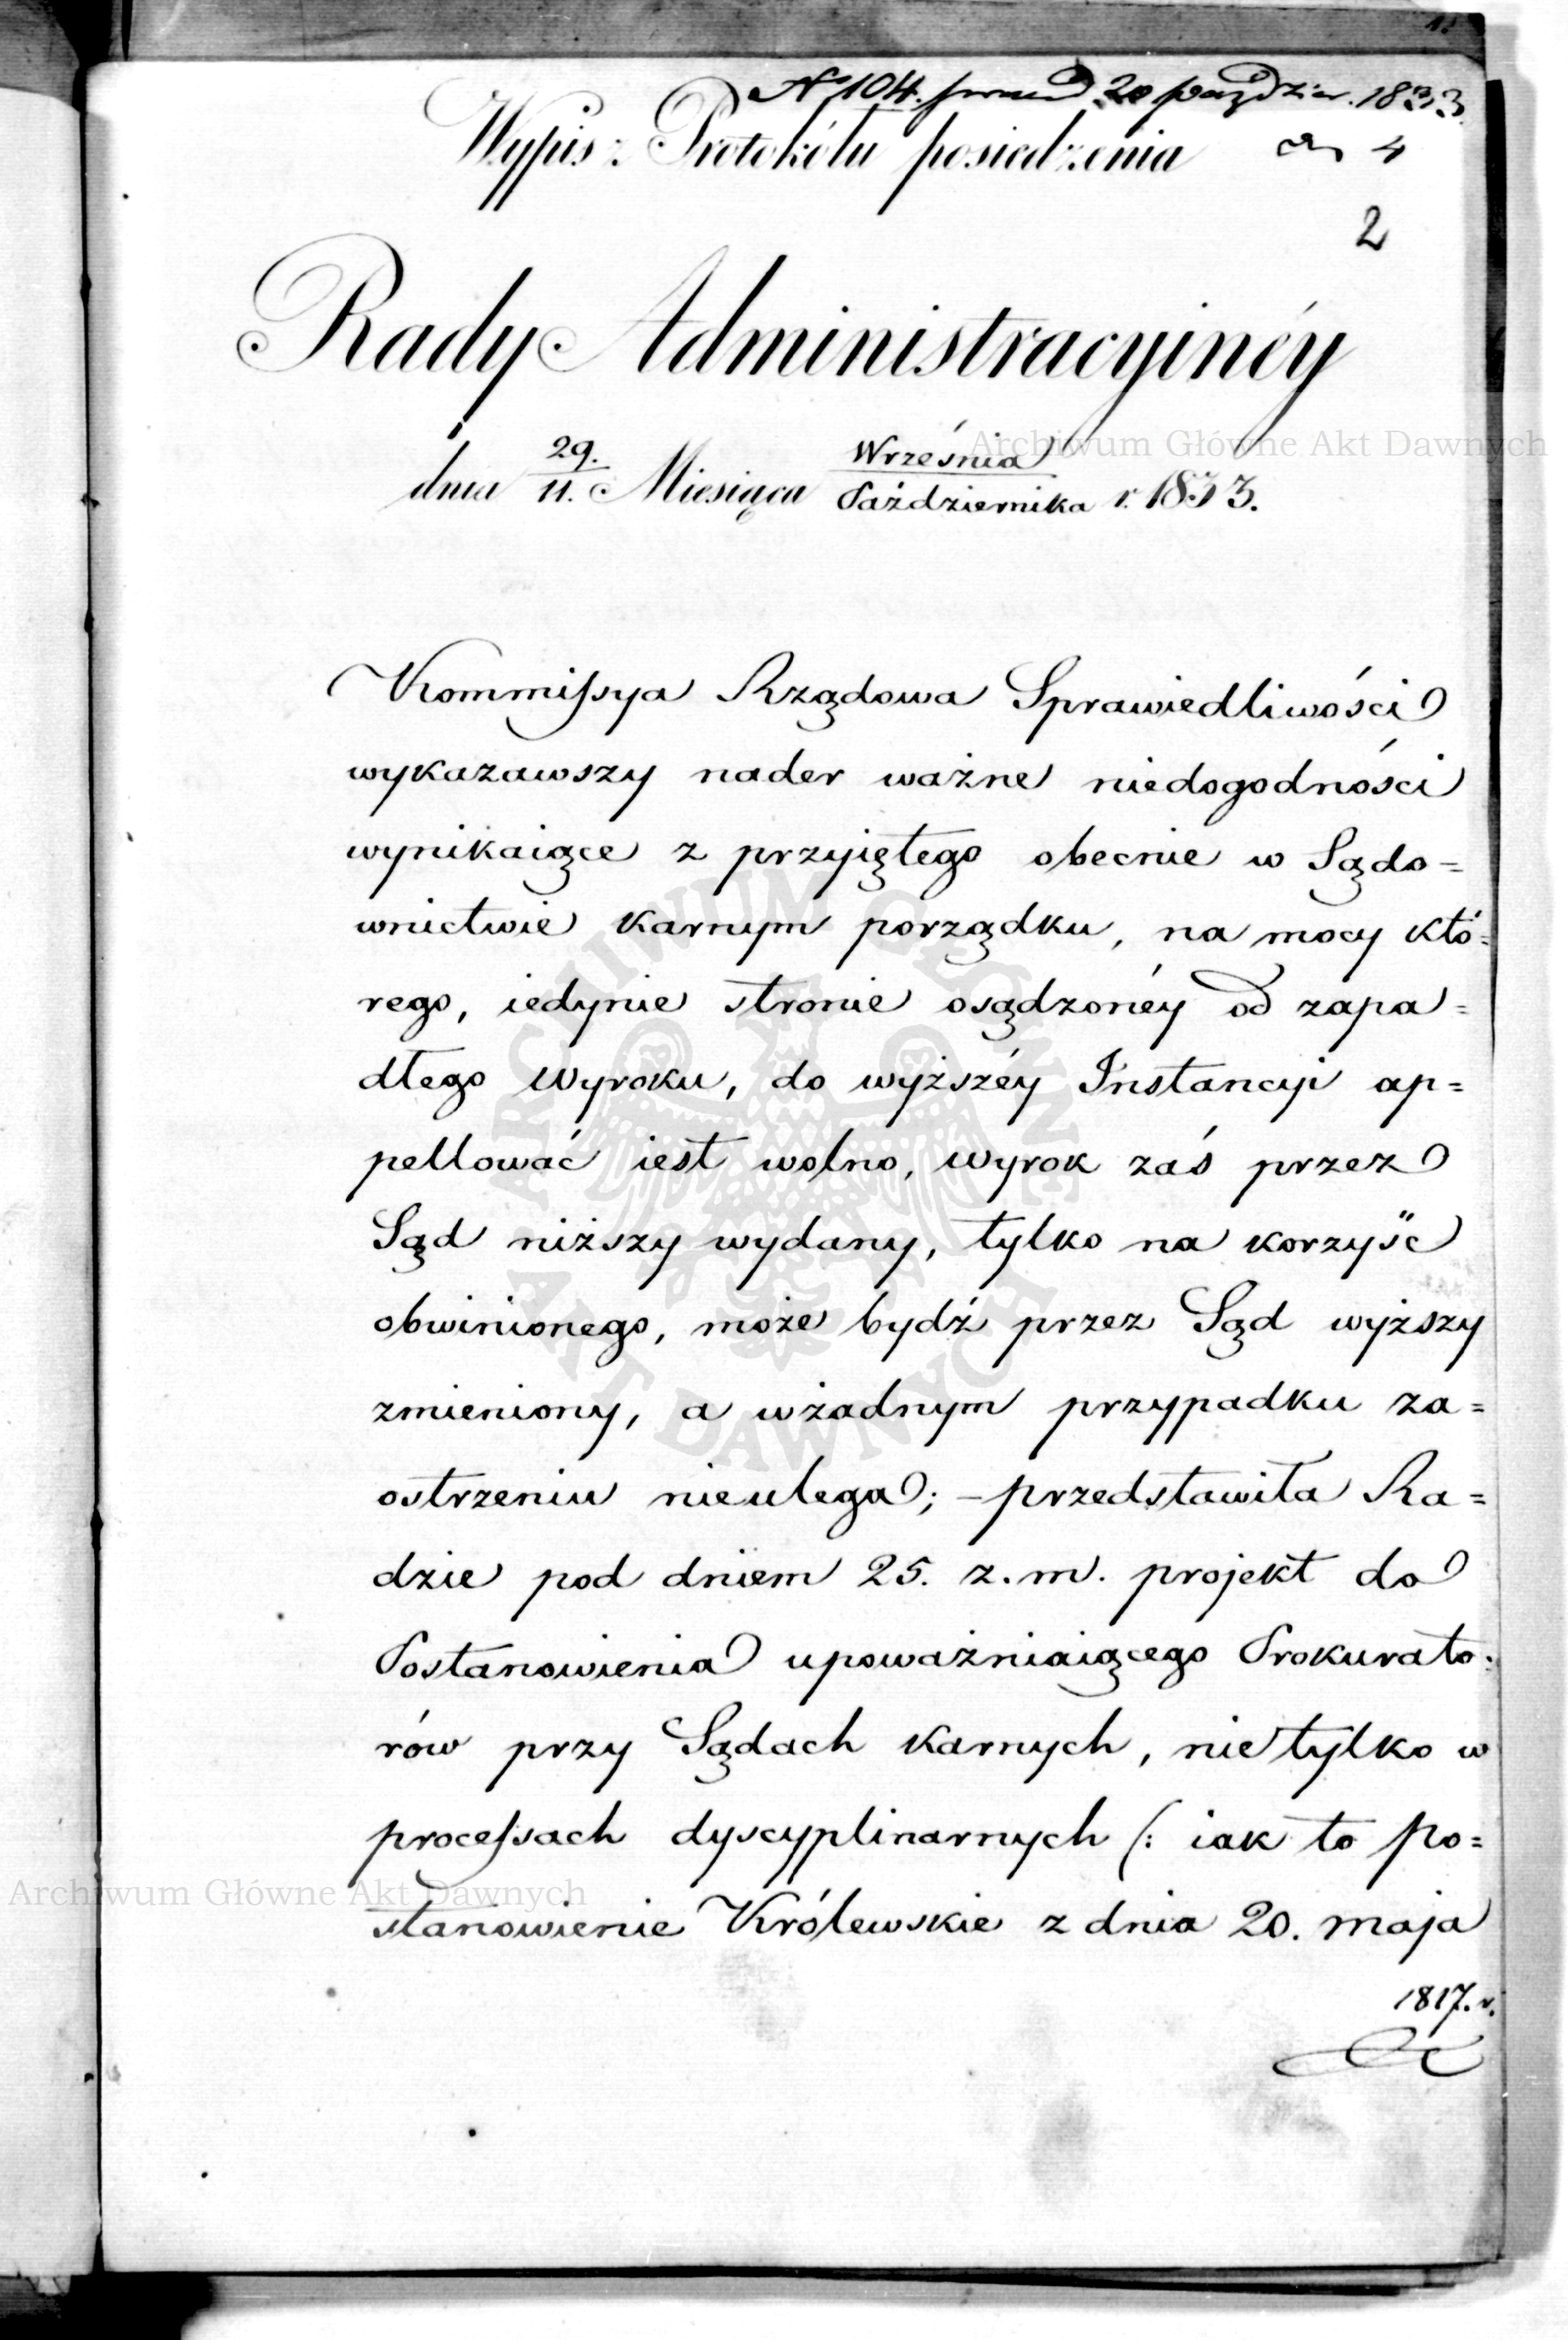 Nº 104. 20 paździer. 1833
Wypis z Protokółu posiedzenia
4
2
Rady Administracyinéy
dnia 29./11. Miesiąca Września/Października r. 1833.
Archiwum Główne Akt Dawnych
Kommissya Rządowa Sprawiedliwości
wykazawszy nader ważne niedogodności
wynikaiące z przyiętego obecnie w Sądo=
wnictwie karnym porządku, na mocy któ=
rego, iedynie stronie osądzonéy od zapa=
dłego Wyroku, do wyższéy Instancyi ap=
pellować iest wolno, wyrok zaś przez
Sąd niższy wydany, tylko na korzyść
obwinionego, może bydź przez Sąd wyższy
zmieniony, a wżadnym przypadku za=
ostrzeniu nieulega; – przedstawiła Ra=
dzie pod dniem 25. z. m. projekt do
Postanowienia upoważniaiącego Prokurato=
rów przy Sądach karnych, nietylko w
processach dyscyplinarnych (: iak to po=
Archiwum Główne Akt Dawnych
stanowienie Królewskie z dnia 20. maja
1817. r.
ARCHIWUM GŁÓWNE
AKT DAWNYCH